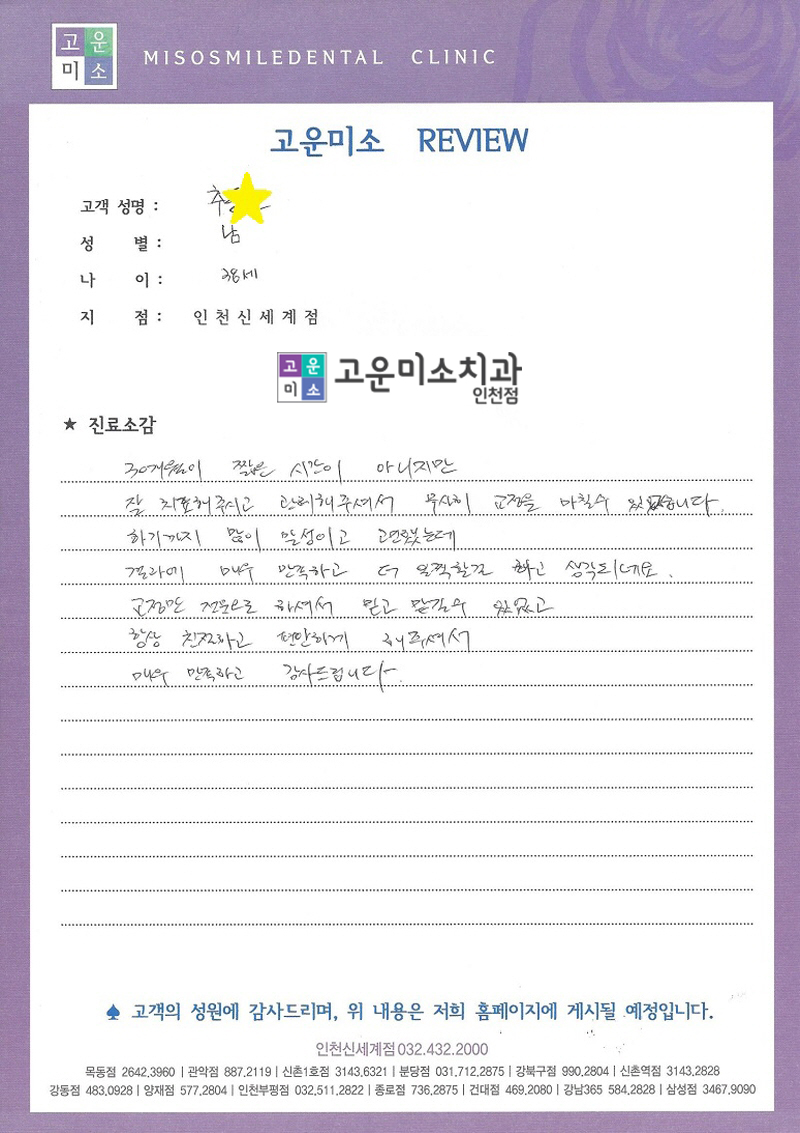 고운
미소
MISOSMILEDENTAL CLINIC
고운미소 REVIEW
고객 성명 : 추
성 별 : 남
나 이 : 38세
지 점 : 인천신세계점
고운
미소
고운미소치과
인천점
★ 진료소감
30개월이 짧은 시간이 아니지만
잘 치료해주시고 관리해주셔서 무사히 교정을 마칠수 있었습니다.
하기까지 많이 망설이고 고민했었는데
결과에 매우 만족하고 더 일찍할걸 하고 생각되네요.
교정만 전문으로 하셔서 믿고 맡길수 있었고
항상 친절하고 편안하게 해주셔서
매우 만족하고 감사드립니다.
♠ 고객의 성원에 감사드리며, 위 내용은 저희 홈페이지에 게시될 예정입니다.
인천신세계점 032.432.2000
목동점 2642,3960 | 관악점 887.2119 | 신촌1호점 3143,6321 | 분당점 031,712,2875 | 강북구점 990,2804 | 신촌역점 3143,2828
강동점 483,0928 | 양재점 577,2804 | 인천부평점 032,511,2822 | 종로점 736,2875 | 건대점 469,2080 | 강남365 584,2828 | 삼성점 3467,9090